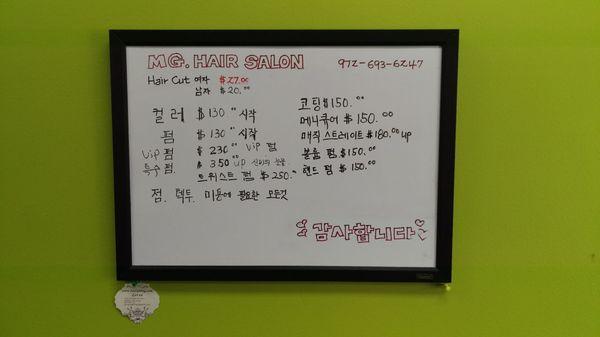 MG. HAIR SALON
972-693-6247
Hair Cut 여자 $27.00
남자 $20.00
컬러 $130.00 시작
펌 $130.00 시작
Vip 펌 $230.00 Vip 펌
특수펌 $350.00 up
트위스트 펌 $250.00
점. 텍투. 미용에 필요한 모든것
코팅 $150.00
메니큐어 $150.00
매직 스트레이트 $180.00 up
볼륨 펌 $150.00
핸드 펌 $150.00
감사합니다